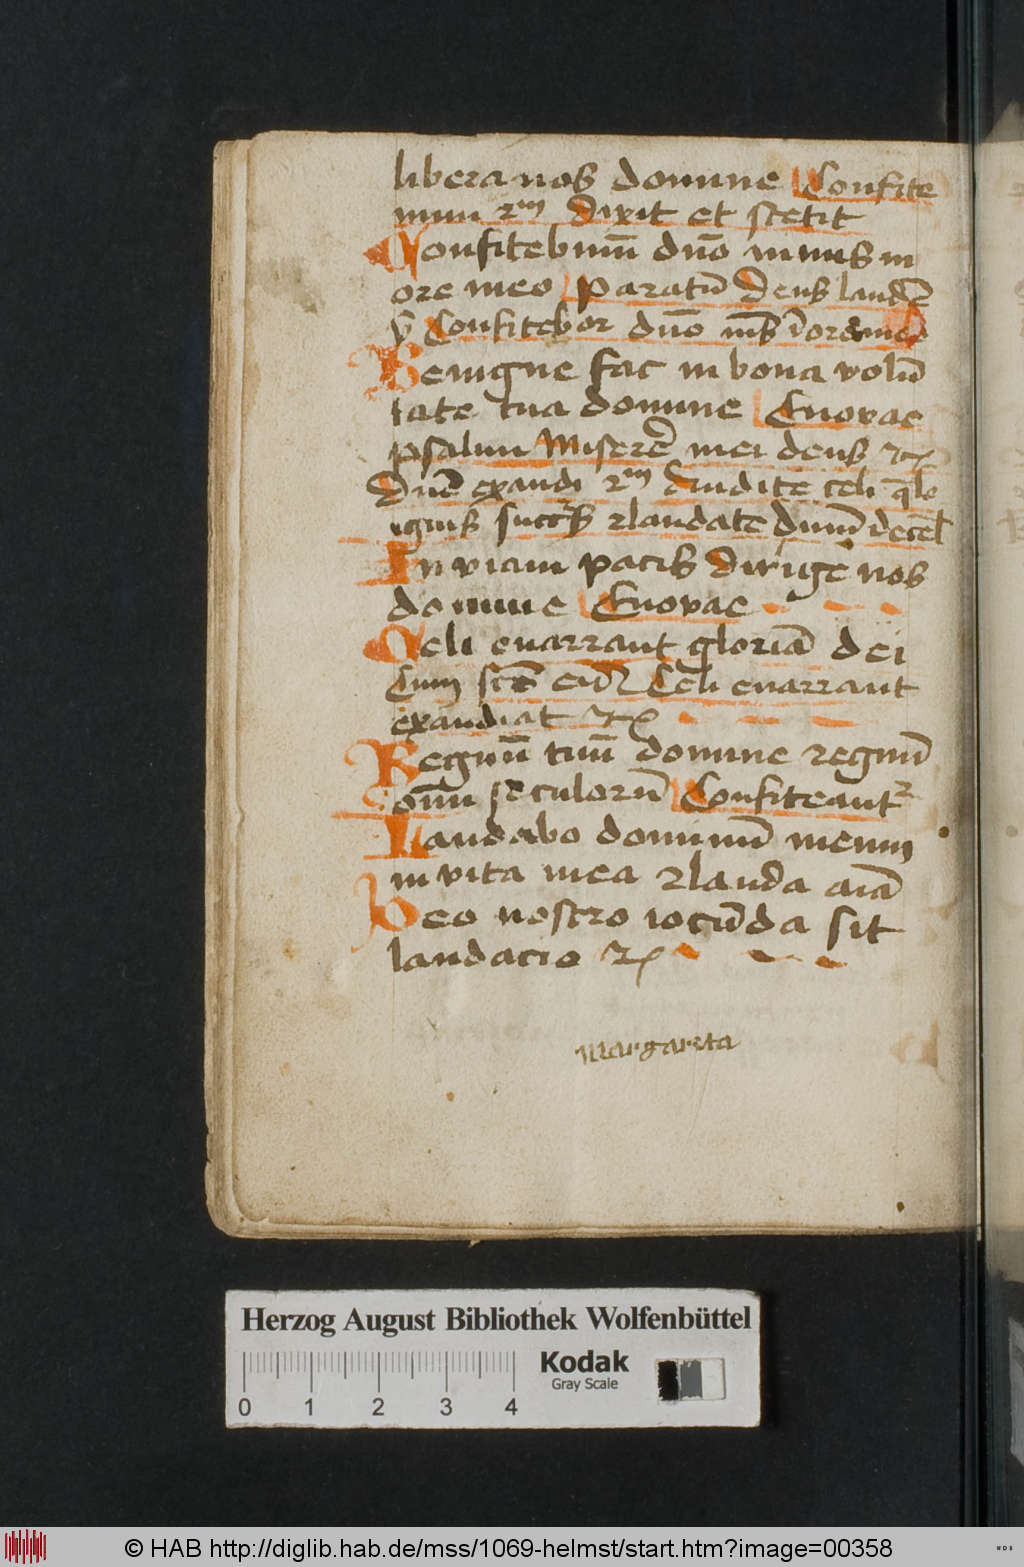 libera nos domine Confite
mini 2m dixit et stetit
Confitebimū dn̄o nimis in
ore meo Paratū deus laudē
v̄ Confitebor dn̄o nīs ī ore meo
Benigne fac in bona volū
tate tua domine Euovae
psalmi Miserē mei deus 2c
Dn̄e exaudi 2m Audite celi q̄ lo
ignis succēs 2 laudate dnm̄ de cel
In viam pacis dirige nos
domine Euovae
Celi enarrant gloriā dei
Cum scō eiū Celi enarrant
exaudiat 2c
Regnū tuū domine regnū
om̄i seculorū Confiteant2
Laudabo dominū meum
in vita mea 2 lauda aīā
Deo nostro iocūda sit
laudacio 2c
margareta
Herzog August Bibliothek Wolfenbüttel
Kodak
Gray Scale
0 1 2 3 4
© HAB http://diglib.hab.de/mss/1069-helmst/start.htm?image=00358